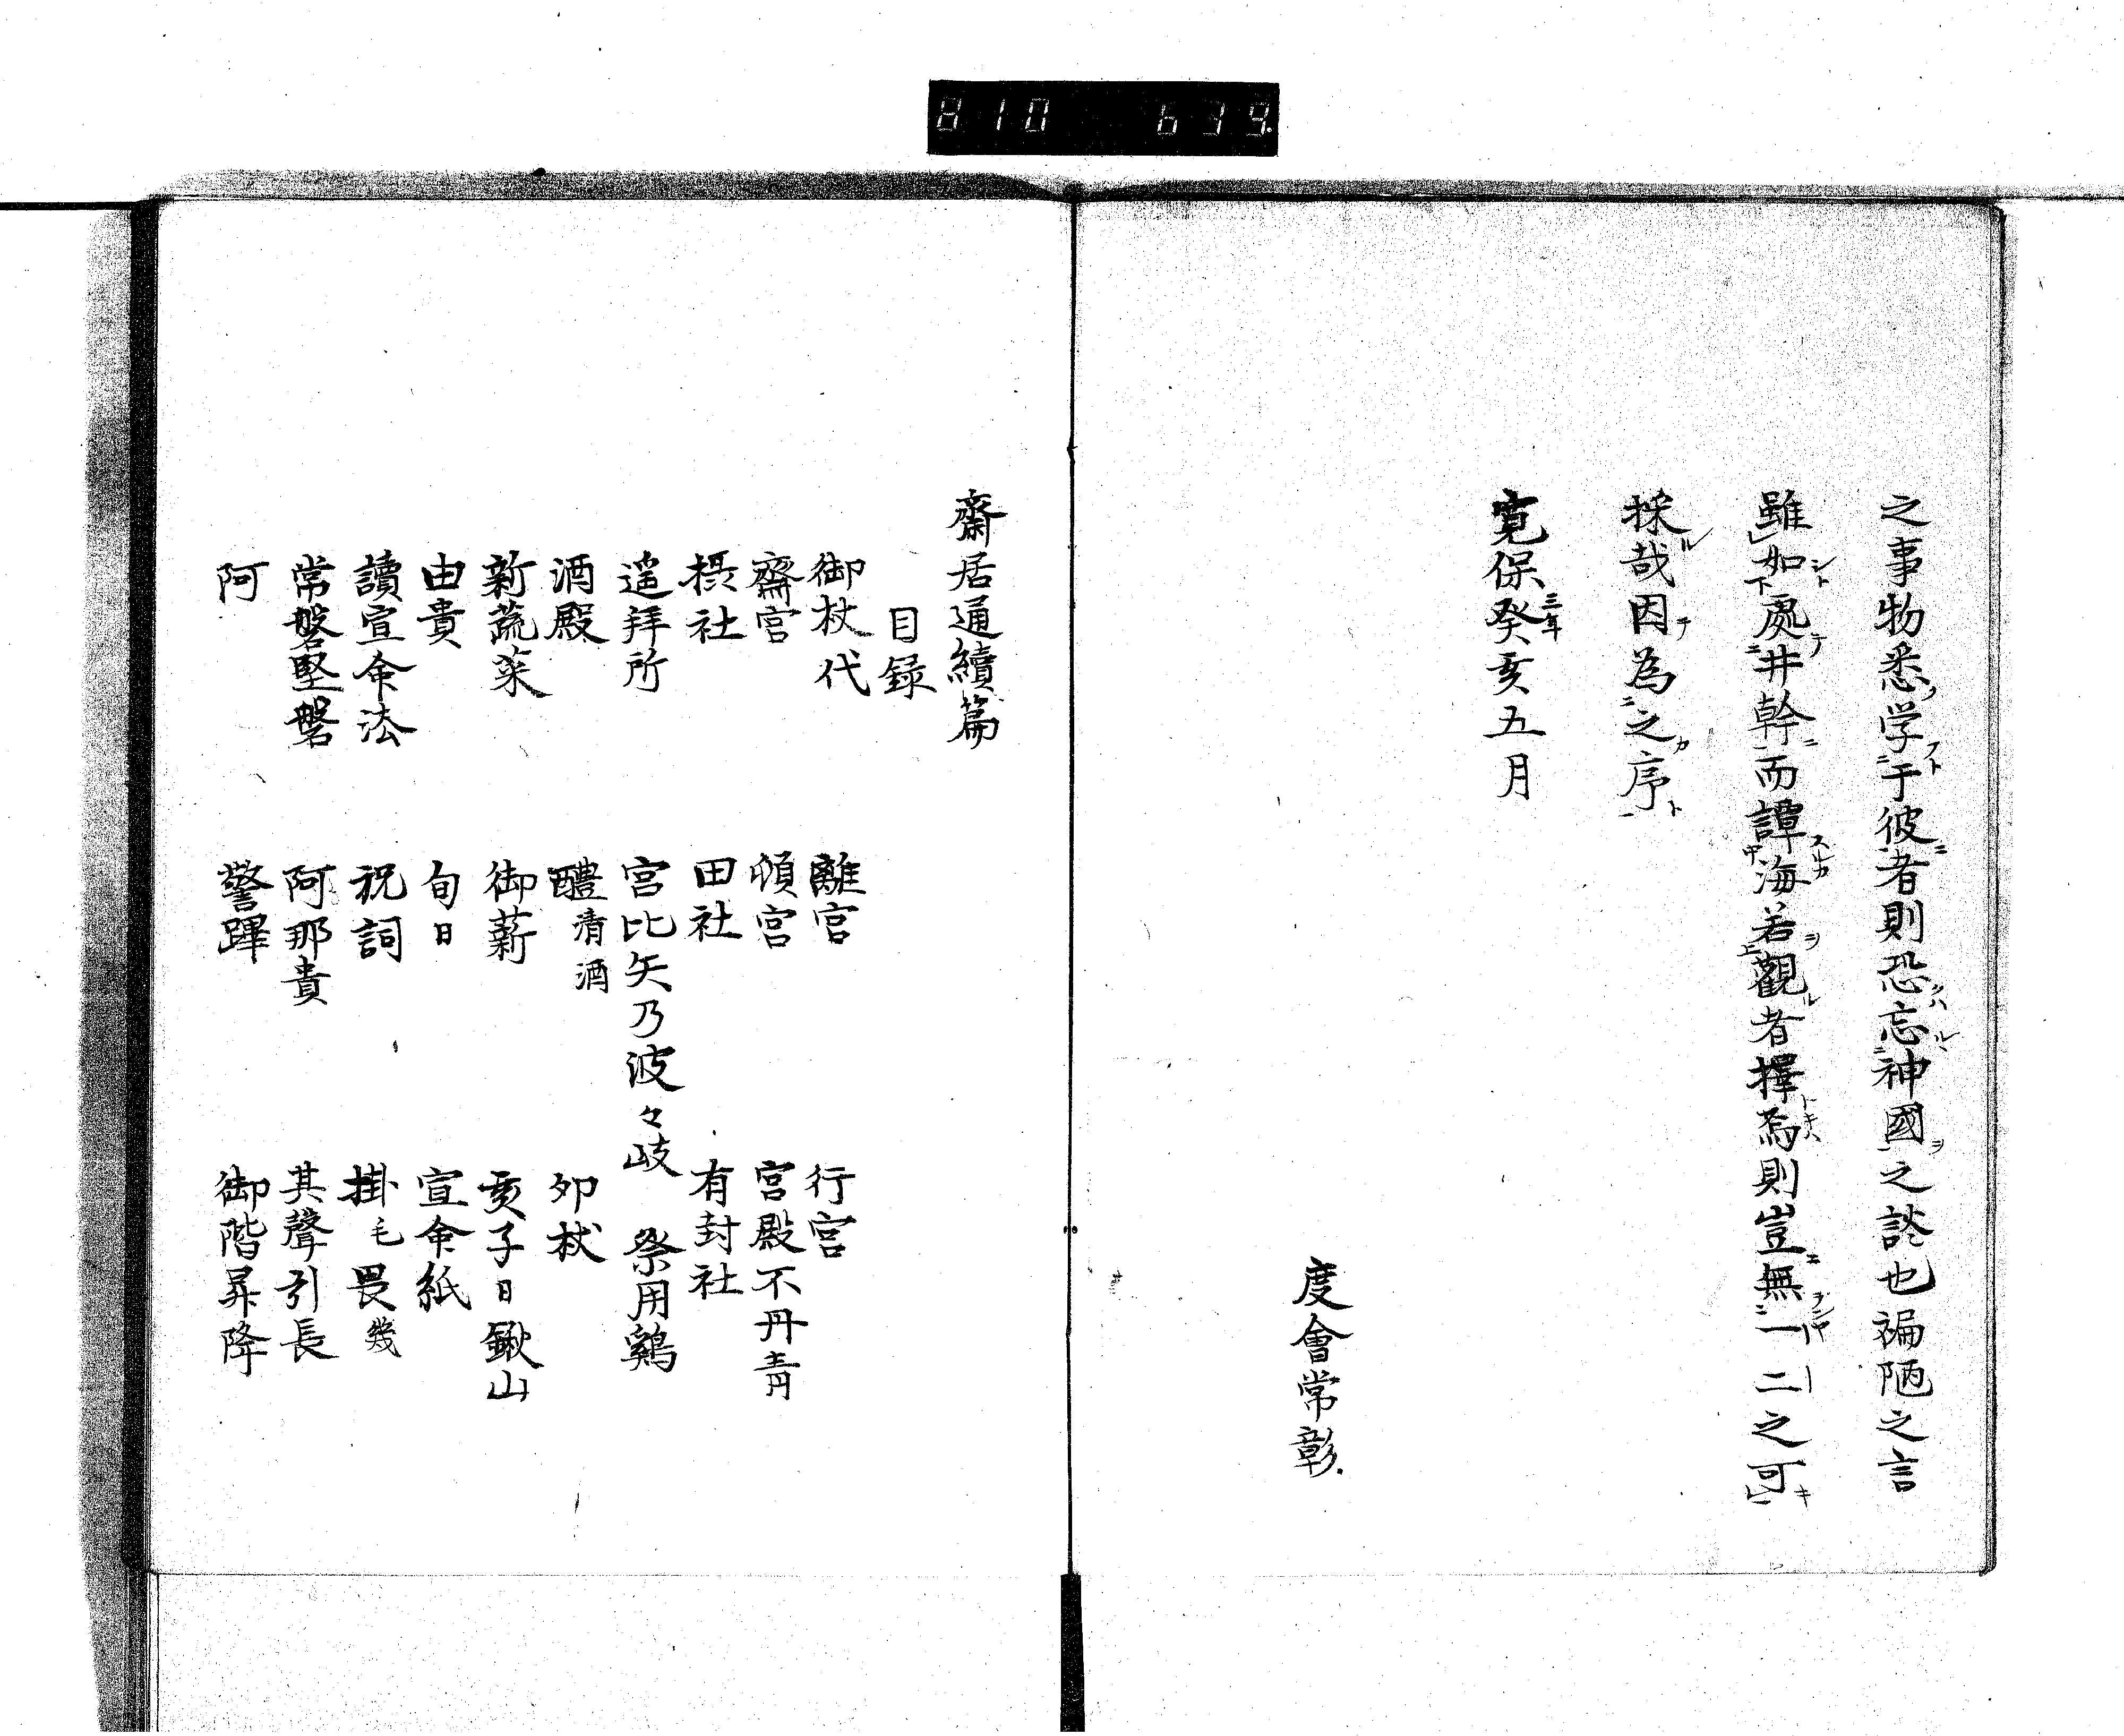 之事物悉学于彼者則恐忘神國之談也褊陋之言
雖如處井幹而譚海若觀者擇焉則豈無一二之可
採哉因為之序
寛保癸亥五月
三年
度會常彰
齋居通續篇
目録
御杖代 離宮 行宮
齋宮 頓宮 宮殿不丹青
摂社 田社 有封社
遥拜所 宮比矢乃波々岐 祭用鷄
酒殿 醴清酒 卯杖
新蔬菜 御薪 亥子日鍬山
由貴 旬日 宣命紙
讀宣命法 祝詞 掛毛畏幾
常磐堅磐 阿那貴 其聲引長
阿 警蹕 御階昇降
810 639